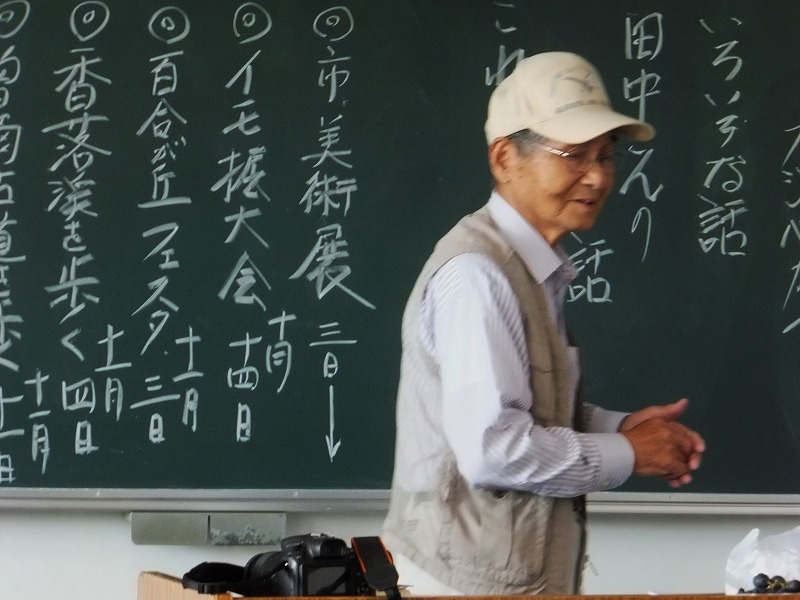 いろいろな話
田中さんの
話
これ
◎市美術展 三日→
◎イモ掘大会 十月十四日
◎百合が丘フェスタ 十一月三日
◎香落渓を歩く 十一月四日
十一月